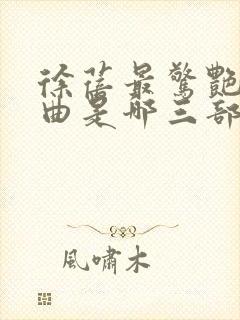 徐蓓最驚艷
曲是哪三部
風嘯木